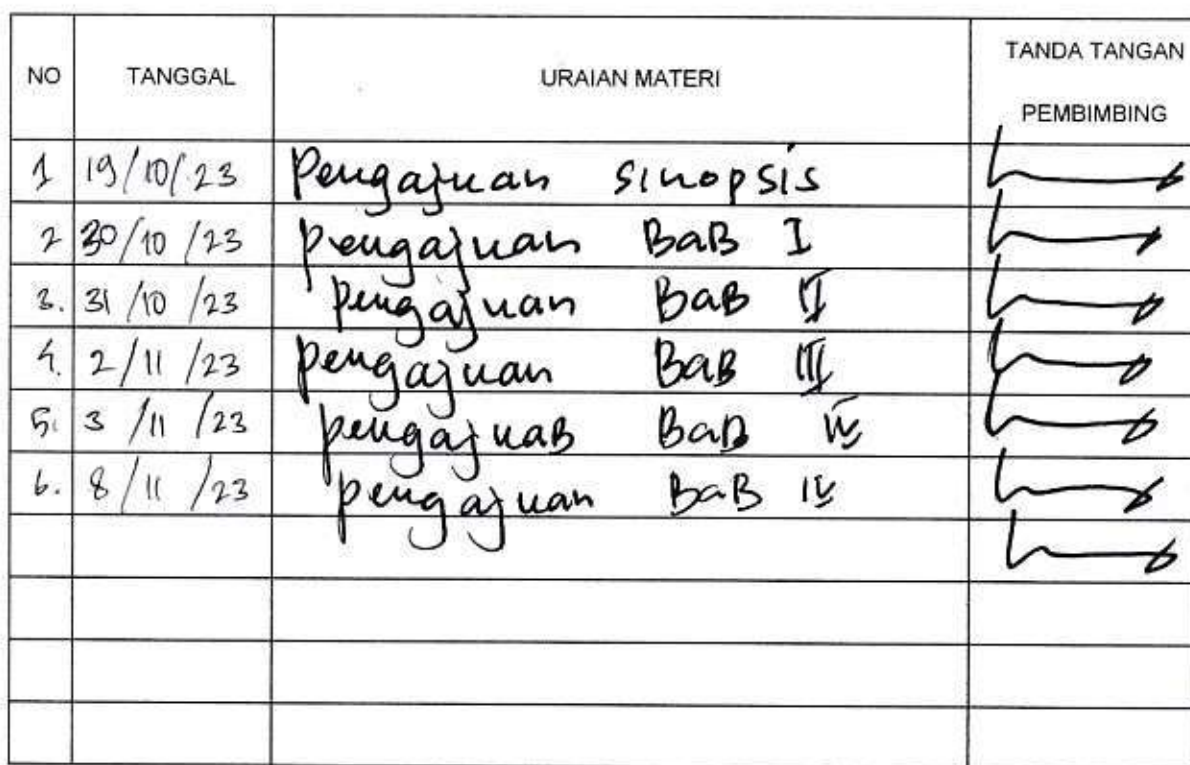 NO TANGGAL URAIAN MATERI TANDA TANGAN PEMBIMBING
1 19/10/23 Pengajuan sinopsis
2 30/10/23 pengajuan BaB I
3. 31/10/23 pengajuan BaB II
4. 2/11/23 pengajuan BaB III
5. 3/11/23 pengajuaB BaB IV
6. 8/11/23 pengajuan BaB IV